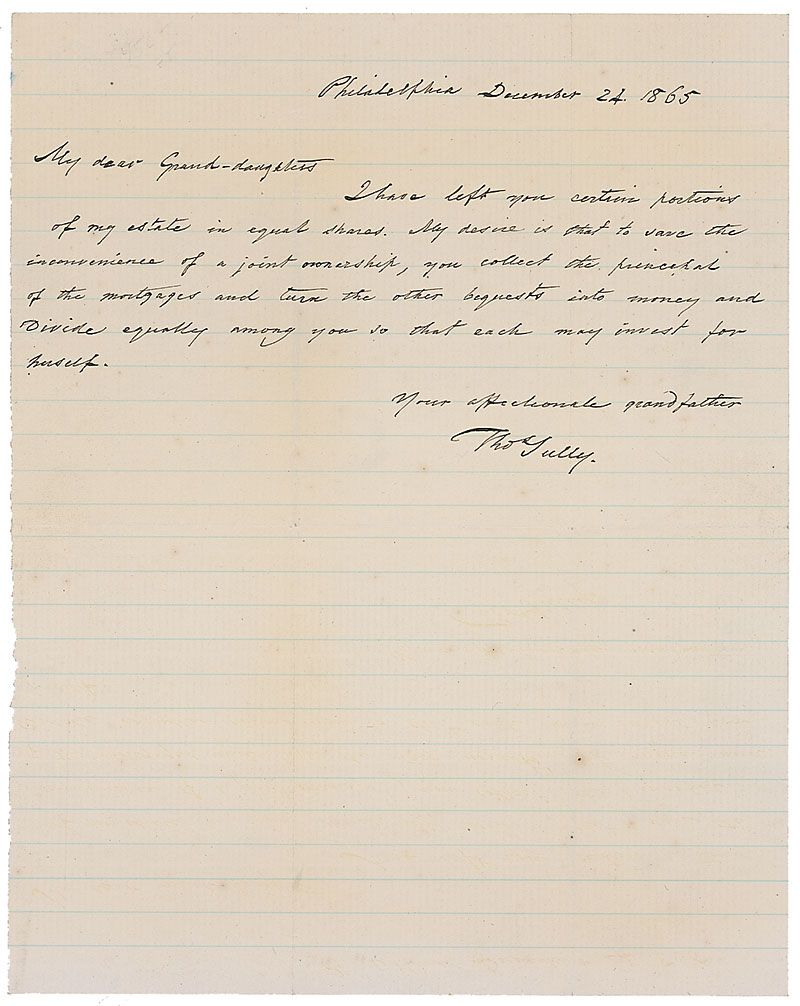 Philadelphia December 24. 1865
My dear Grand-daughters
I have left you certain portions
of my estate in equal shares. My desire is that to save the
inconvenience of a joint ownership, you collect the principal
of the mortgages and turn the other bequests into money and
Divide equally among you so that each may invest for
herself.
Your affectionate grandfather
Thos Sully.